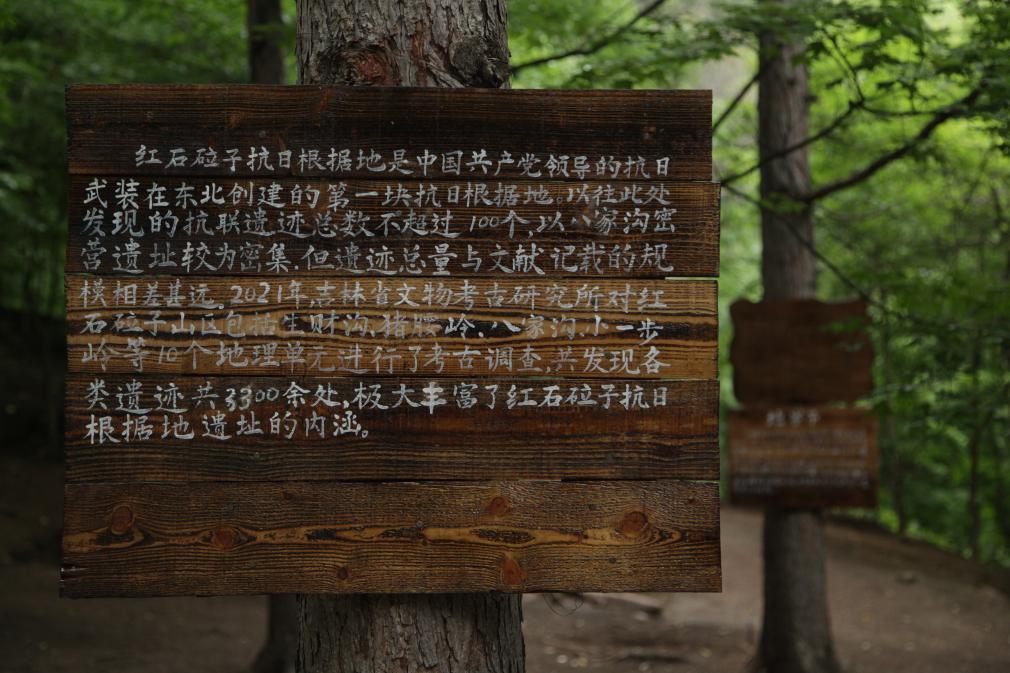 红石砬子抗日根据地是中国共产党领导的抗日
武装在东北创建的第一块抗日根据地。以往此处
发现的抗联遗迹总数不超过100个,以八家沟密
营遗址较为密集.但遗迹总量与文献记载的规
模相差甚远。2021年,吉林省文物考古研究所对红
石砬子山区包括生财沟.猪腰岭.八家沟.小一步
岭等10个地理单元进行了考古调查,共发现各
类遗迹共3300余处,极大丰富了红石砬子抗日
根据地遗址的内涵。